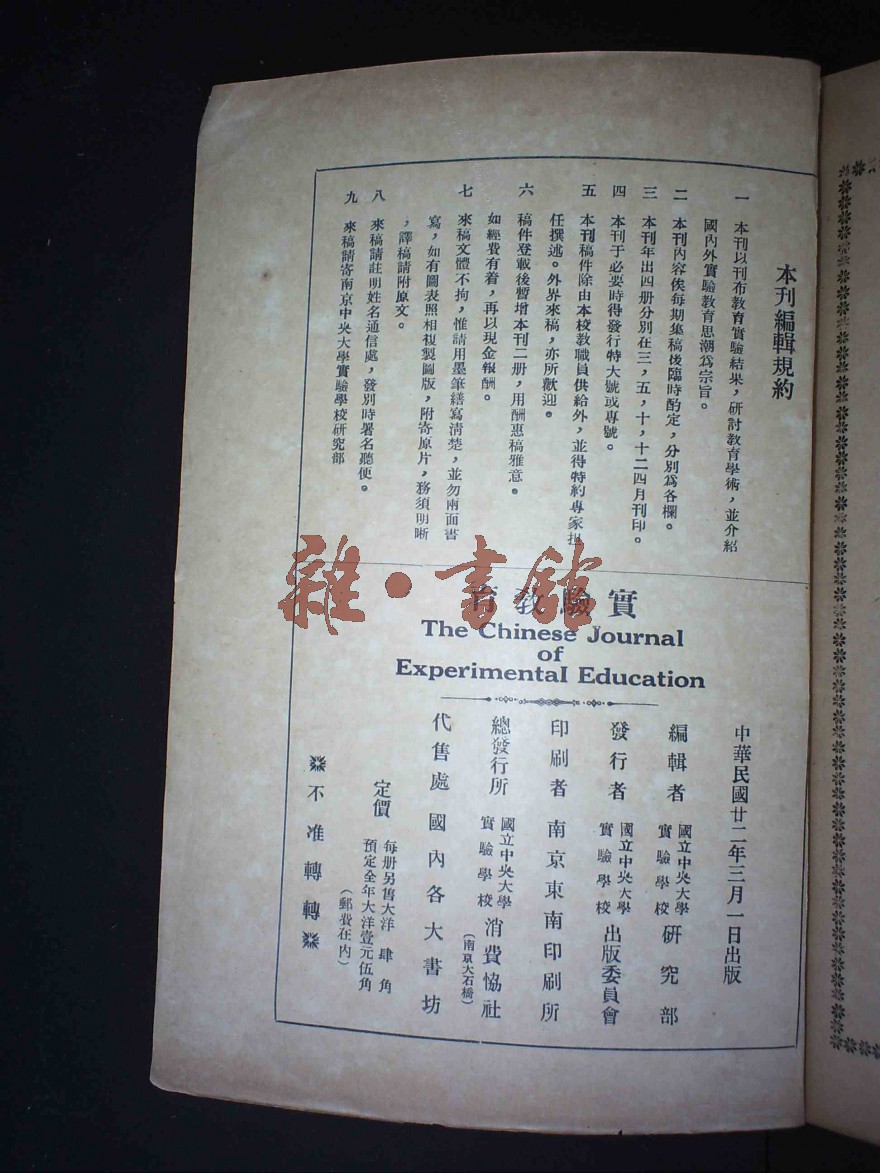 本刊編輯規約
一 本刊以刊布教育實驗結果，研討教育學術，並介紹
國內外實驗教育思潮爲宗旨。
二 本刊內容俟每期集稿後臨時酌定，分別爲各欄。
三 本刊年出四册分別在三，五，十，十二四月刊印。
四 本刊于必要時得發行特大號或專號。
五 本刊稿件除由本校教職員供給外，並得特約專家担
任撰述。外界來稿，亦所歡迎。
六 稿件登載後暫增本刊二册，用酬惠稿雅意。
如經費有着，再以現金報酬。
七 來稿文體不拘，惟請用墨筆繕寫清楚，並勿兩面書
寫，如有圖表照相複製圖版，附寄原片，務須明晰
，譯稿請附原文。
八 來稿請註明姓名通信處，發別時署名聽便。
九 來稿請寄南京中央大學實驗學校研究部
雜·書館
實驗教育
The Chinese Journal
of
Experimental Education
中華民國廿二年三月一日出版
編輯者 國立中央大學實驗學校 研究部
發行者 國立中央大學實驗學校 出版委員會
印刷者 南京東南印刷所
總發行所 國立中央大學實驗學校 消費恊社
（南京大石橋）
代售處 國內各大書坊
定價 每册另售大洋肆角
預定全年大洋壹元伍角
（郵費在內）
不准轉轉